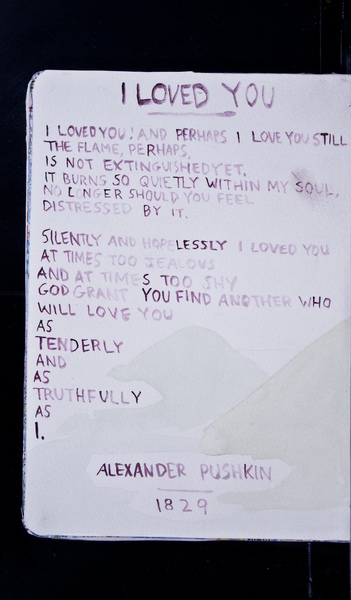 I LOVED YOU
I LOVED YOU! AND PERHAPS I LOVE YOU STILL
THE FLAME, PERHAPS,
IS NOT EXTINGUISHED YET.
IT BURNS SO QUIETLY WITHIN MY SOUL,
NO LONGER SHOULD YOU FEEL
DISTRESSED BY IT.
SILENTLY AND HOPELESSLY I LOVED YOU
AT TIMES TOO JEALOUS
AND AT TIMES TOO SHY
GOD GRANT YOU FIND ANOTHER WHO
WILL LOVE YOU
AS
TENDERLY
AND
AS
TRUTHFULLY
AS
I.
ALEXANDER PUSHKIN
1829